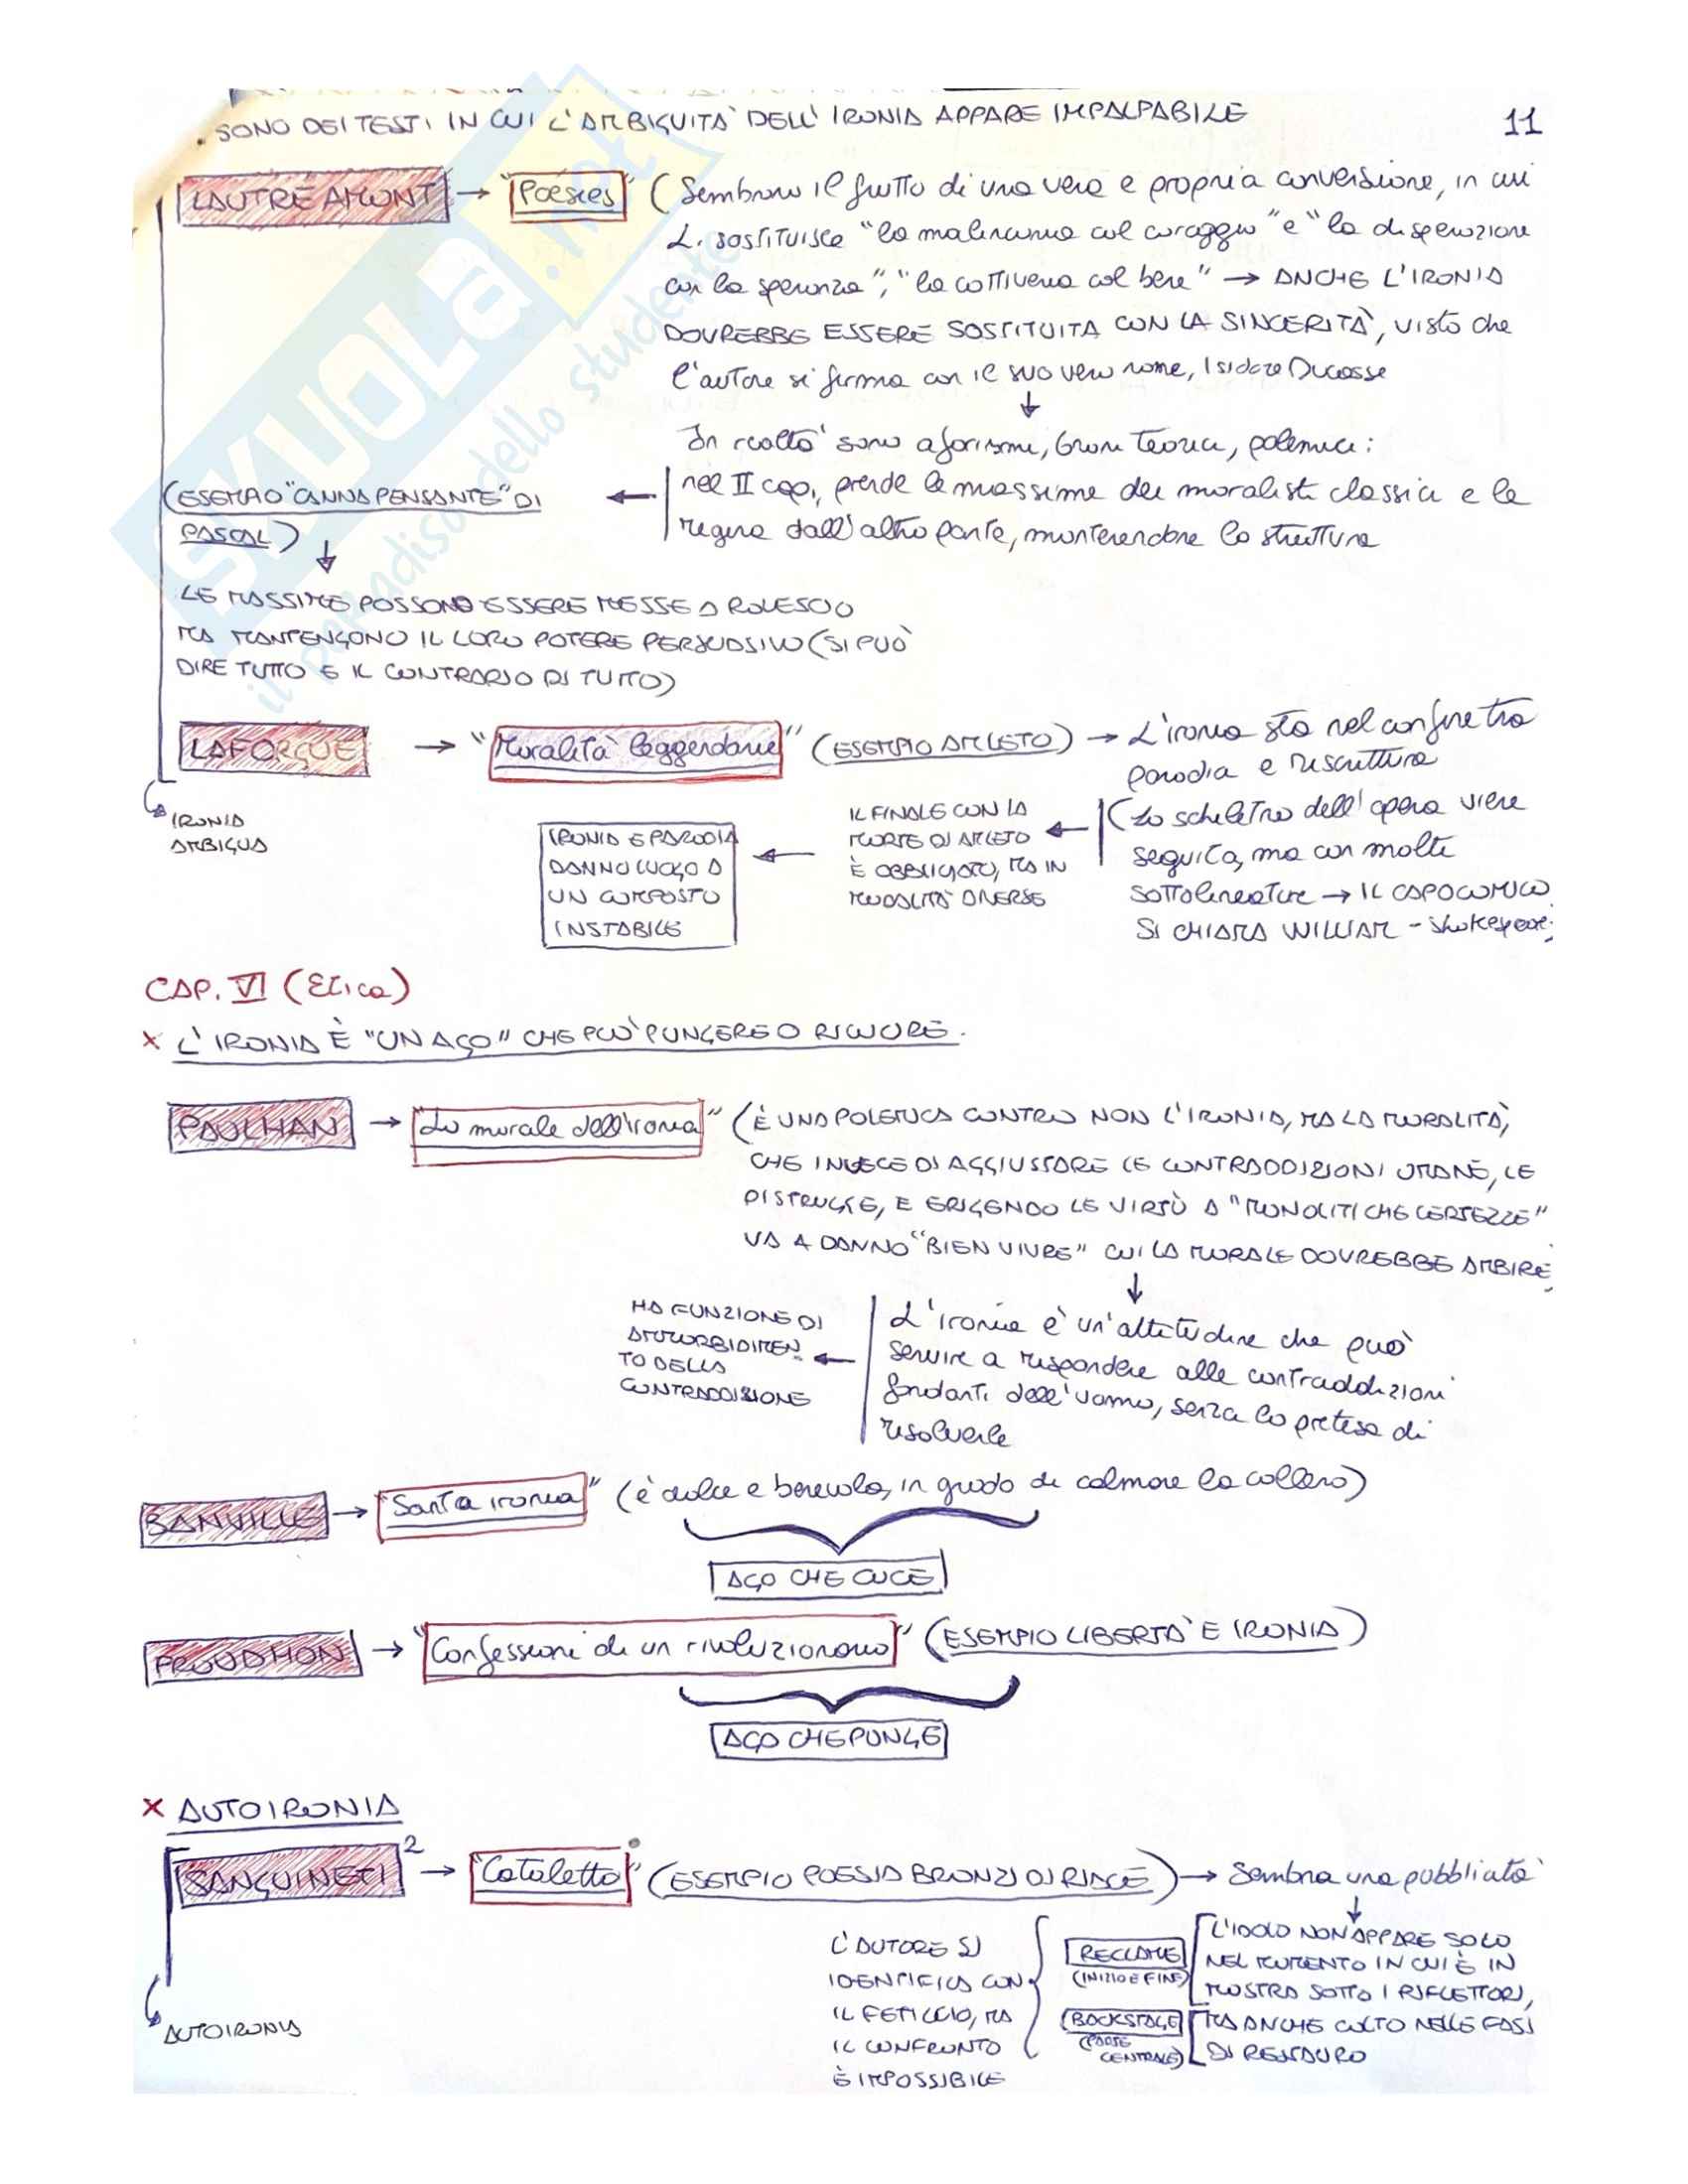 . SONO DEI TESTI IN CUI L'AMBIGUITÀ DELL'IRONIA APPARE IMPALPABILE
11
LAUTRÉAMONT → "Poésies" (Sembrano il frutto di una vera e propria conversione, in cui
L. sostituisce "la malinconia col coraggio" e "la disperazione
con la speranza", "la cattiveria col bene" → ANCHE L'IRONIA
DOVREBBE ESSERE SOSTITUITA CON LA SINCERITÀ, visto che
l'autore si firma con il suo vero nome, Isidore Ducasse
↓
In realtà sono aforismi, brani teorici, polemici:
nel II cap, prende le massime dei moralisti classici e le
rigira dall'altra parte, mantenendone la struttura
←
(ESEMPIO "CANNA PENSANTE" DI
PASCAL)
↓
LE MASSIME POSSONO ESSERE MESSE A ROVESCIO
MA MANTENGONO IL LORO POTERE PERSUASIVO (SI PUÒ
DIRE TUTTO E IL CONTRARIO DI TUTTO)
LAFORGUE → "Moralità leggendarie" (ESEMPIO AMLETO) → L'ironia sta nel confine tra
parodia e riscrittura
(Lo scheletro dell'opera viene
seguito, ma con molte
sottolineature → IL CAPOCOMICO
SI CHIAMA WILLIAM - Shakespeare
←
IL FINALE CON LA
MORTE DI AMLETO
È OBBLIGATO, MA IN
MODALITÀ DIVERSE
←
IRONIA E PARODIA
DANNO LUOGO A
UN COMPOSTO
INSTABILE
IRONIA
AMBIGUA
CAP. VI (Etica)
x L'IRONIA È "UN AGO" CHE PUÒ PUNGERE O RICUCIRE.
PAULHAN → "La morale dell'ironia" (È UNA POLEMICA CONTRO NON L'IRONIA, MA LA MORALITÀ,
CHE INVECE DI AGGIUSTARE LE CONTRADDIZIONI UMANE, LE
DISTRUGGE, E ERIGENDO LE VIRTÙ A "MONOLITICHE CERTEZZE"
VA A DANNO "BIEN VIVRE" CUI LA MORALE DOVREBBE AMBIRE
↓
L'ironia è un'attitudine che può
servire a rispondere alle contraddizioni
fondanti dell'uomo, senza la pretesa di
risolverle
←
HA FUNZIONE DI
AMMORBIDIMEN
TO DELLA
CONTRADDIZIONE
BANVILLE → "Santa ironia" (è dolce e benevola, in grado di calmare la collera)
AGO CHE CUCE
PROUDHON → "Confessioni di un rivoluzionario" (ESEMPIO LIBERTÀ E IRONIA)
AGO CHE PUNGE
x AUTOIRONIA
SANGUINETI 2 → "Cataletto" (ESEMPIO POESIA BRONZI DI RIACE) → Sembra una pubblicità
↓
L'AUTORE SI
IDENTIFICA CON
IL FETICCIO, MA
IL CONFRONTO
È IMPOSSIBILE
RECLAME
(INIZIO E FINE)
BACKSTAGE
(PARTE
CENTRALE)
L'IDOLO NON APPARE SOLO
NEL MOMENTO IN CUI È IN
MOSTRA SOTTO I RIFLETTORI,
MA ANCHE COLTO NELLE FASI
DI RESTAURO
AUTOIRONIA
SKUOLA.net
il paradiso dello studente